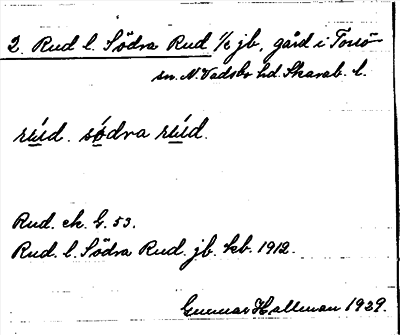 2. Rud l. Södra Rud ½ jb, gård i Torsö
sn. N. Vadsbo hd. Skarab. l.
rúd. sódra rúd.
Rud. ek. G. 53.
Rud. l. Södra Rud. jb. kb. 1912.
Gunnar Hallman 1929.